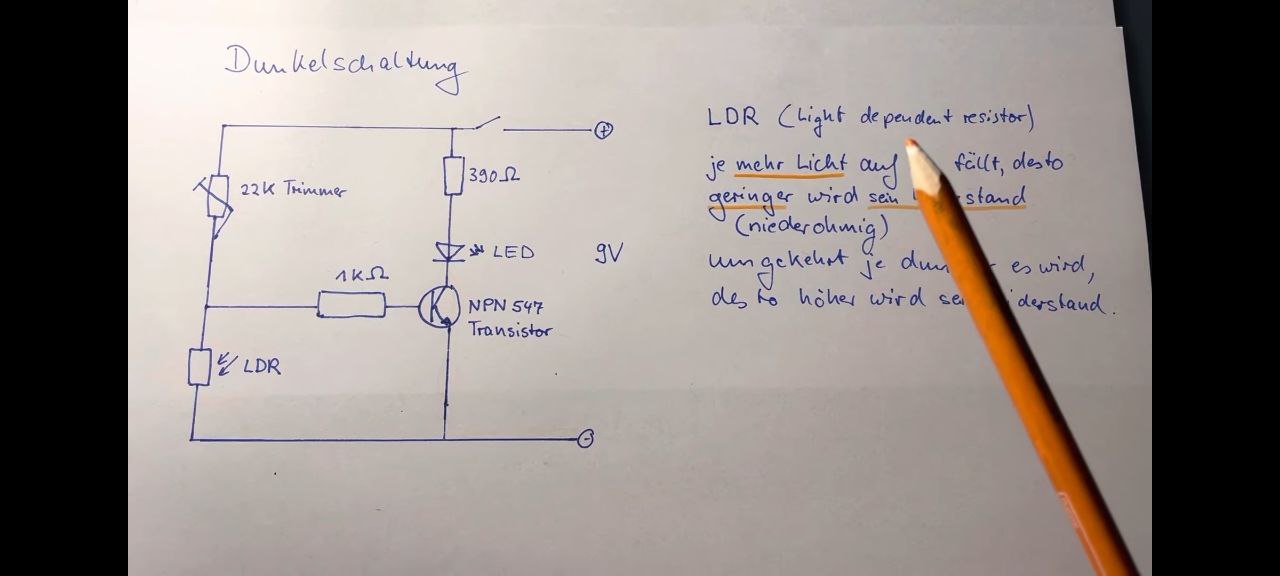 Dunkelschaltung
22K Trimmer
390Ω
LED
9V
1KΩ
NPN 547
Transistor
LDR
+
-
LDR (Light dependent resistor)
je mehr Licht auf fällt, desto
geringer wird sein
(niederohmig)
umgekehrt je es wird,
desto höher wird